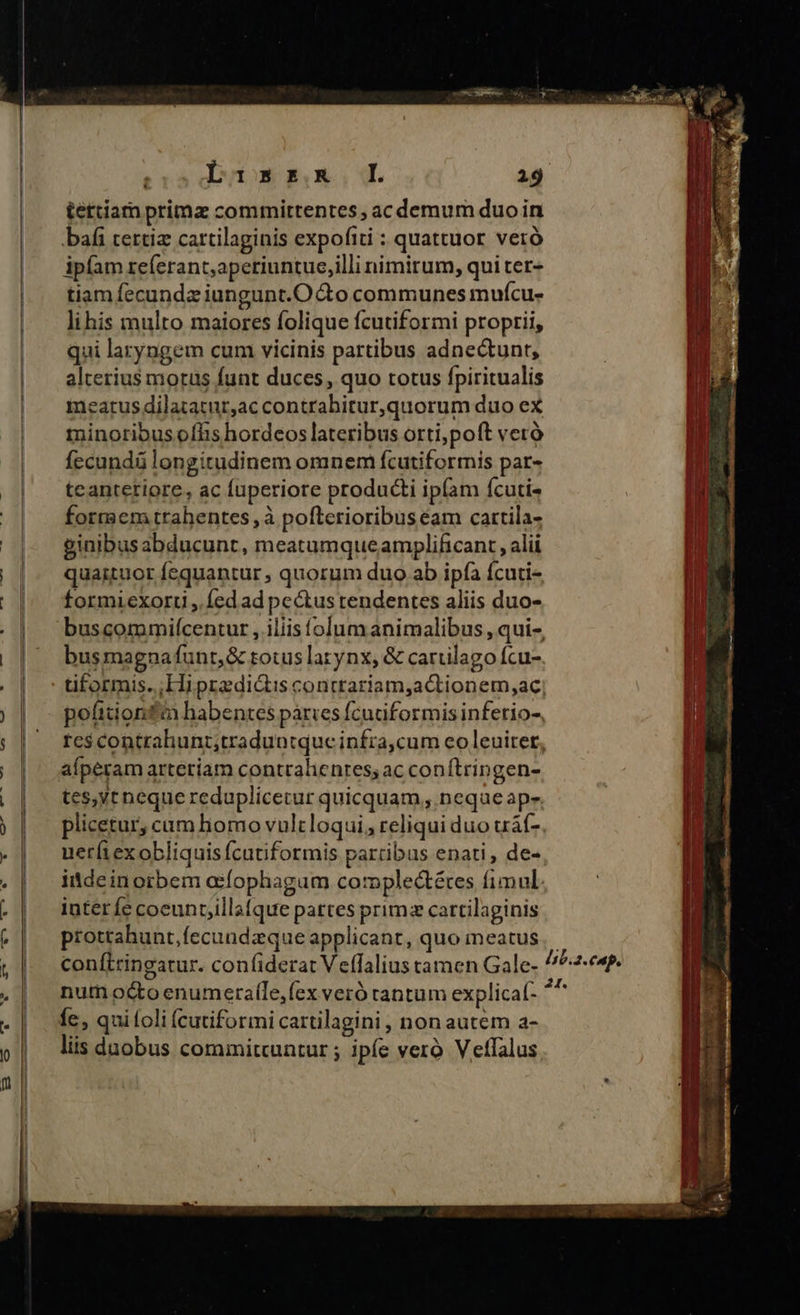 LIBER I. 29
tertiam primæ committentes, ac demum duo in
basi tertiæ cartilaginis expositi : quattuor verò
ipsam reserant, aperiuntue, illi nimirum, qui ter-
tiam secundæ iungunt. Octo communes muscu-
li his multo maiores solique scutiformi proprii,
qui laryngem cum vicinis partibus adnectunt,
alterius motus sunt duces, quo totus spiritualis
meatus dilatatur, ac contrahitur, quorum duo ex
minoribus ossis hordeos lateribus orti, post verò
secundũ longitudinem omnem scutiformis par-
te anteriore, ac superiore producti ipsam scuti-
formem trahentes, à posterioribus eam cartila-
ginibus abducunt, meatumque amplificant, alii
quattuor sequantur, quorum duo ab ipsa scuti-
formi exorti, sed ad pectus tendentes aliis duo-
bus commiscentur, illis solum animalibus, qui-
bus magna sunt, & totus larynx, & cartilago scu-
tiformis. Hi prædictis contrariam, actionem, ac
positionem habentes partes scutiformis inferio-
res contrahunt, traduntque infra, cum eo leuiter,
asperam arteriam contrahentes, ac constringen-
tes, vt neque reduplicetur quicquam, neque ap-
plicetur, cum homo vult loqui, reliqui duo trãs-
uersi ex obliquis scutiformis partibus enati, de-
inde in orbem œsophagum complectẽtes simul
inter se coeunt, illasque partes primæ cartilaginis
protrahunt, secundæque applicant, quo meatus
constringatur. considerat Vessalius tamen Gale-
lib. 2. cap.
21.
num octo enumerasse, sex verò tantum explicas-
se, qui soli scutiformi cartilagini, non autem a-
liis duobus committuntur ; ipse verò Vessalus